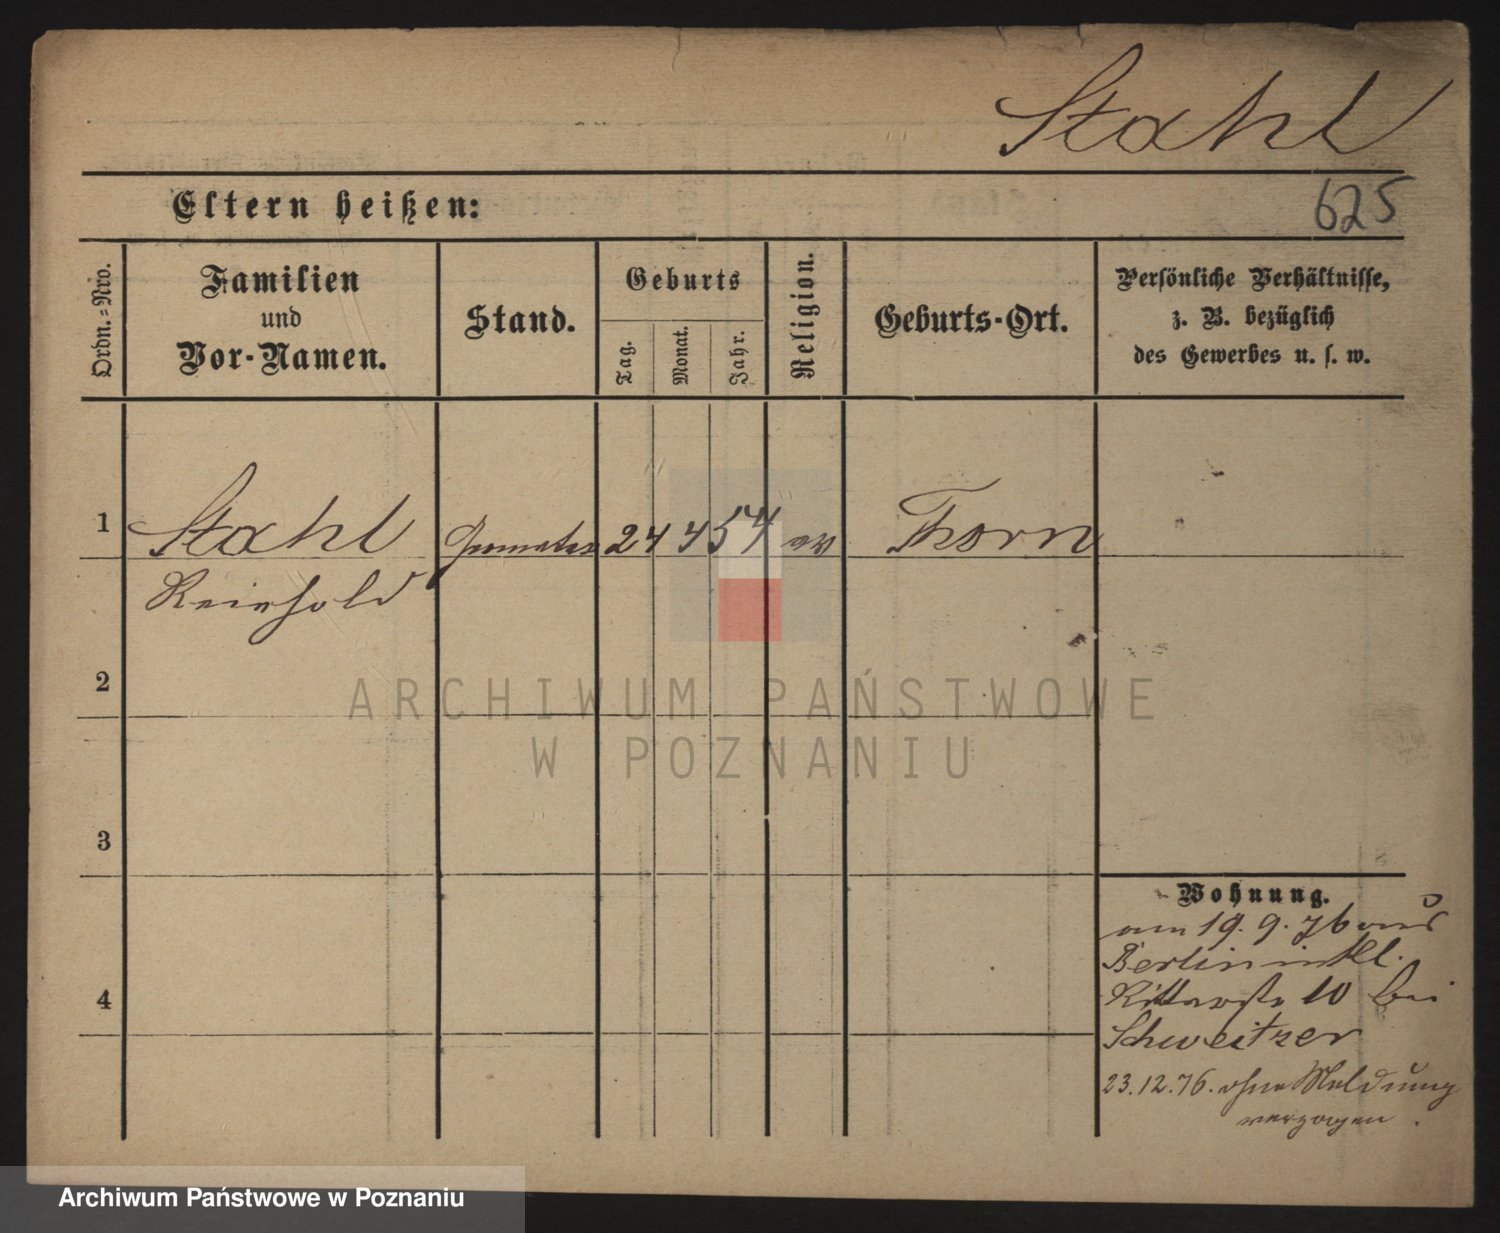 Stahl
625
Eltern heißen:
Ordn.=Nro.
Familien
und
Vor-Namen.
Stand.
Geburts
Tag.
Monat.
Jahr.
Religion.
Geburts-Ort.
Persönliche Verhältnisse,
z. B. bezüglich
des Gewerbes u. s. w.
1
Stahl
24 4 54 ev
Thorn
Reinhold
2
ARCHIWUM PAŃSTWOWE
W POZNANIU
3
4
Wohnung.
am 19. 9. 76 aus
Berlin inkl.
Ritterstr 10 bei
Schweitzer
23.12.76. ohne Meldung
verzogen.
Archiwum Państwowe w Poznaniu